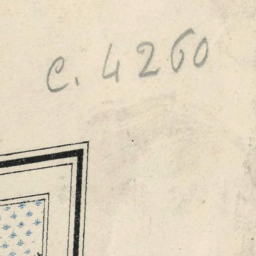 c. 4260